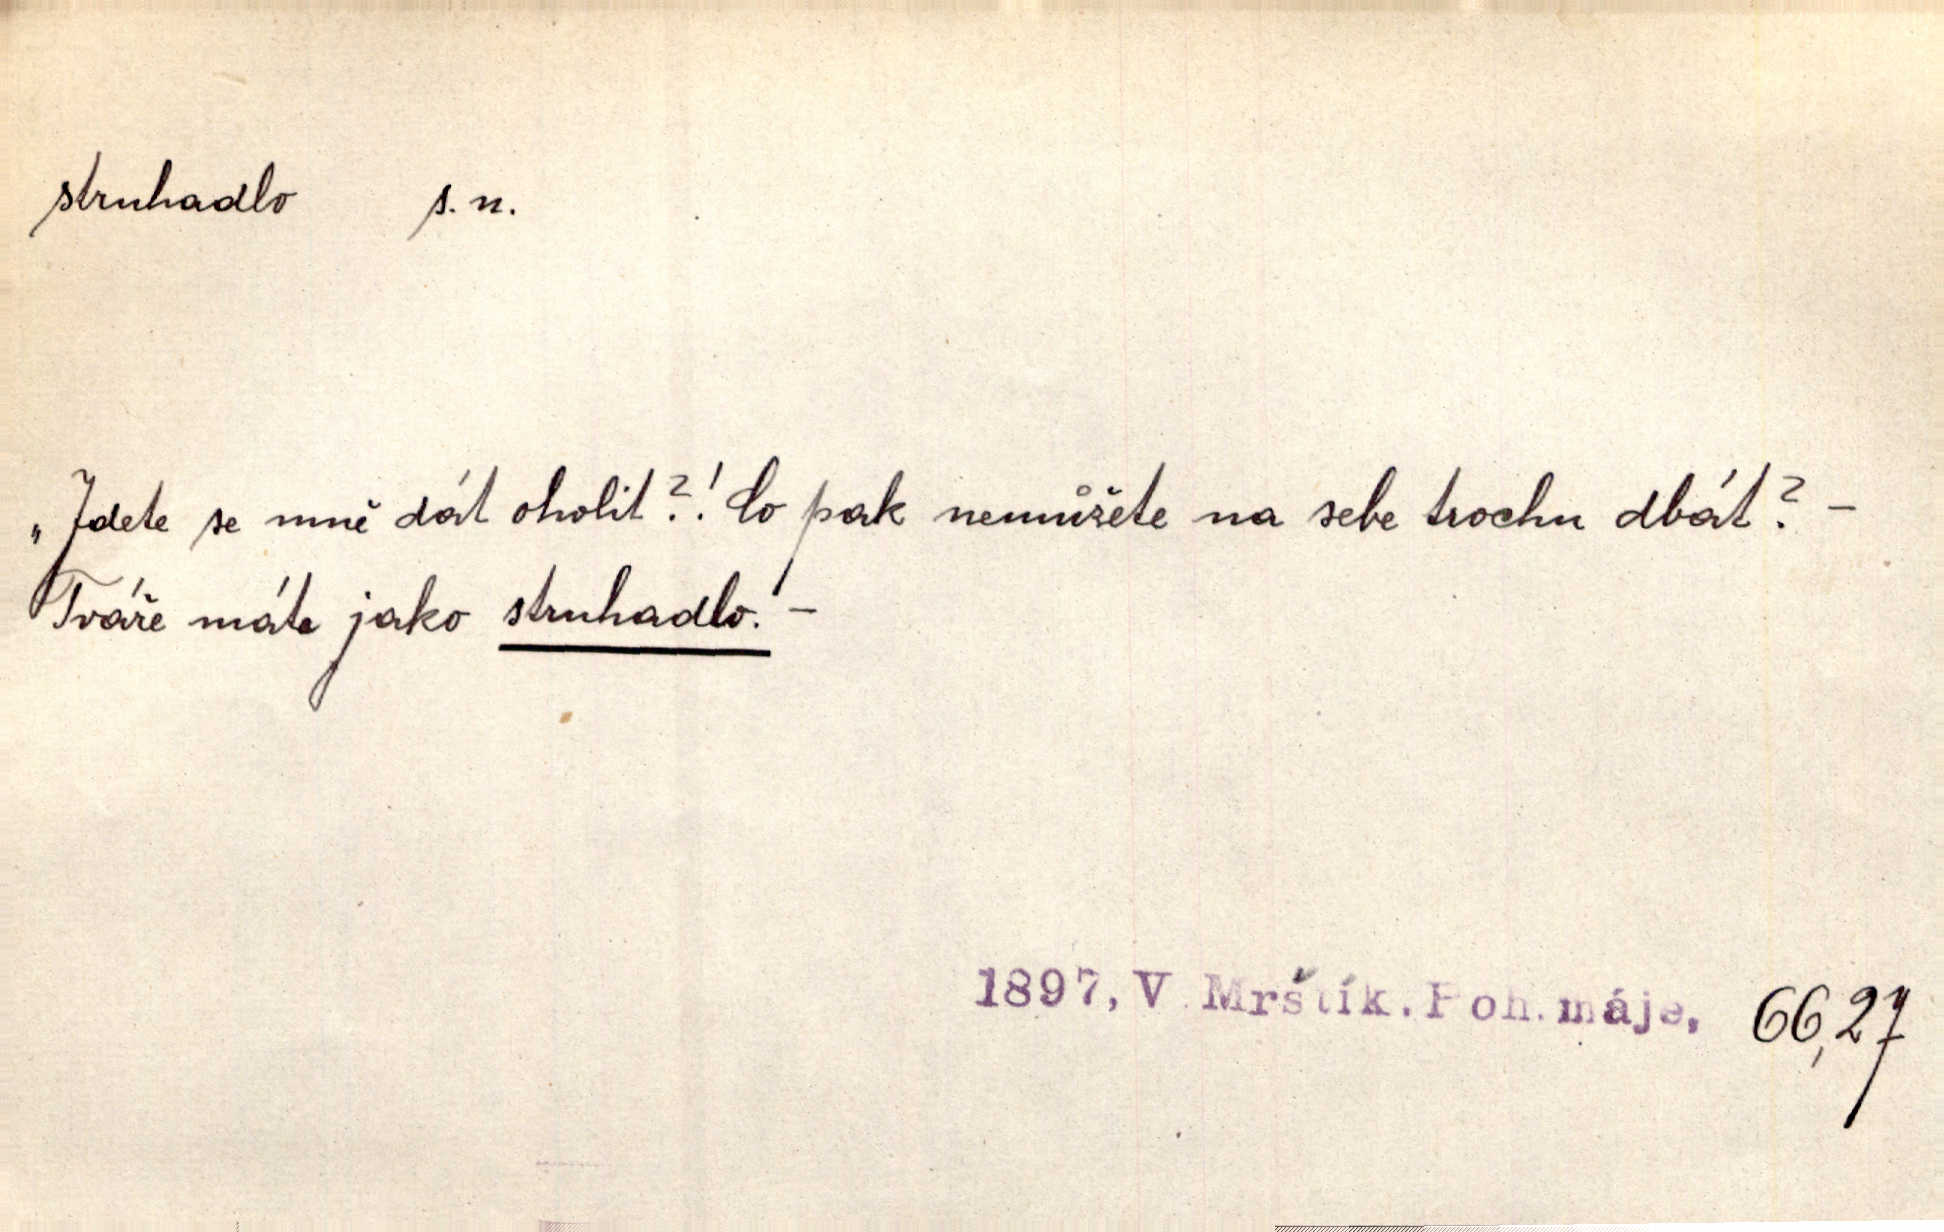 struhadlo s. n.
„Jdete se mně dát oholit?! Co pak nemůžete na sebe trochu dbát? –
Tváře máte jako struhadlo. –
1897, V. Mrštík. Poh. máje, 66,27